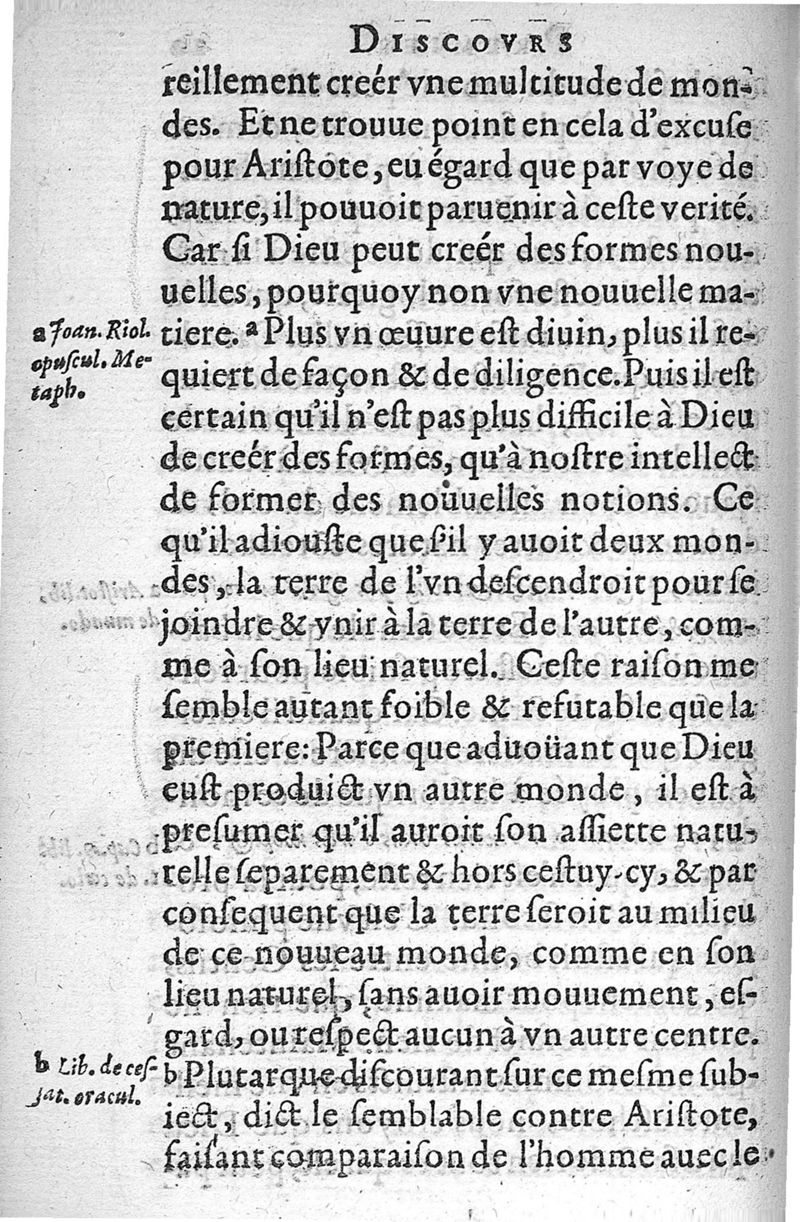 DISCOVRS
reillement creér vne multitude de mon-
des. Et ne trouue point en cela d'excuſe
pour Ariſtote, eu égard que par voye de
nature, il pouuoit paruenir à ceſte verité.
Car ſi Dieu peut creér des formes nou-
uelles, pourquoy non vne nouuelle ma-
a Joan. Riol.
opuſcul. Me-
taph.
tiere. ª Plus vn œuure eſt diuin, plus il re-
quiert de façon & de diligence. Puis il eſt
certain qu'il n'eſt pas plus difficile à Dieu
de creér des formes, qu'à noſtre intellect
de former des nouuelles notions. Ce
qu'il adiouſte que ſ'il y auoit deux mon-
des, la terre de l'vn deſcendroit pour ſe
joindre & vnir à la terre de l'autre, com-
me à ſon lieu naturel. Ceſte raiſon me
ſemble autant foible & refutable que la
premiere: Parce que aduoüant que Dieu
euſt produict vn autre monde, il eſt à
preſumer qu'il auroit ſon aſſiette natu-
relle ſeparement & hors ceſtuy-cy, & par
conſequent que la terre ſeroit au milieu
de ce nouueau monde, comme en ſon
lieu naturel, ſans auoir mouuement, eſ-
gard, ou reſpect aucun à vn autre centre.
b Lib. de ceſ-
ſat. oracul.
b Plutarque diſcourant ſur ce meſme ſub-
iect, dict le ſemblable contre Ariſtote,
faiſant comparaiſon de l'homme auec le